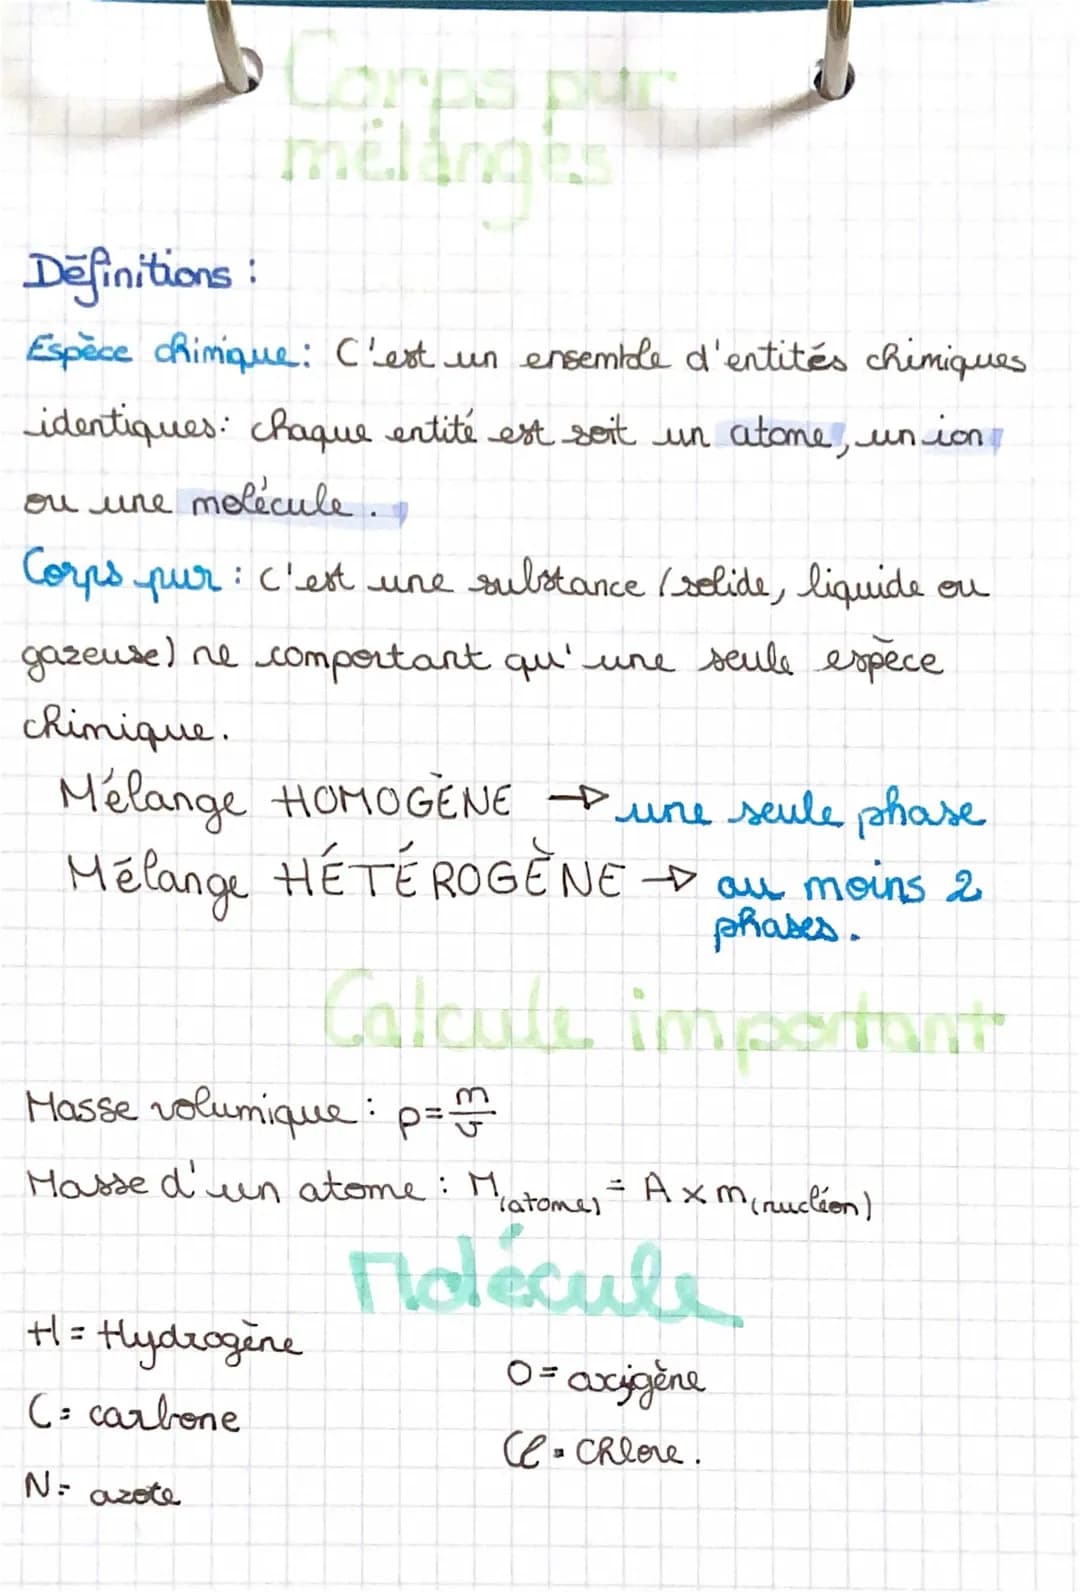 Corps pur
mélanges
Définitions :
Espèce chimique : C'est un ensemble d'entités chimiques
identiques : chaque entité est soit un atome, un ion
ou une molécule .
Corps pur : c'est une substance (solide, liquide ou
gazeuse) ne comportant qu'une seule espèce
chimique.
Mélange HOMOGÈNE → une seule phase
Mélange HÉTÉROGÈNE → au moins 2
phases.
Calcule important
Masse volumique : ρ = m/v
Masse d'un atome : M(atome) = A × m(nucléon)
Molécule
H = Hydrogène
O = oxigène
C = carbone
Cl = Chlore.
N = azote